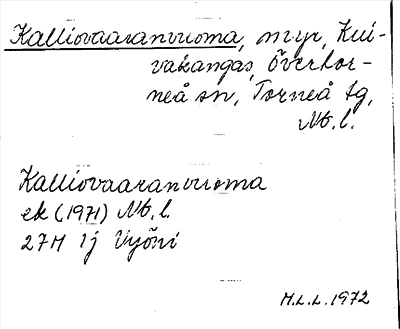 Kalliovaaranvuoma, myr, Kui-
vakangas, Övertor-
neå sn, Torneå tg,
Nb. l.
Kalliovaaranvuoma
ek (1971) Nb. l.
27M 1j Vyöni
M.L.L. 1972